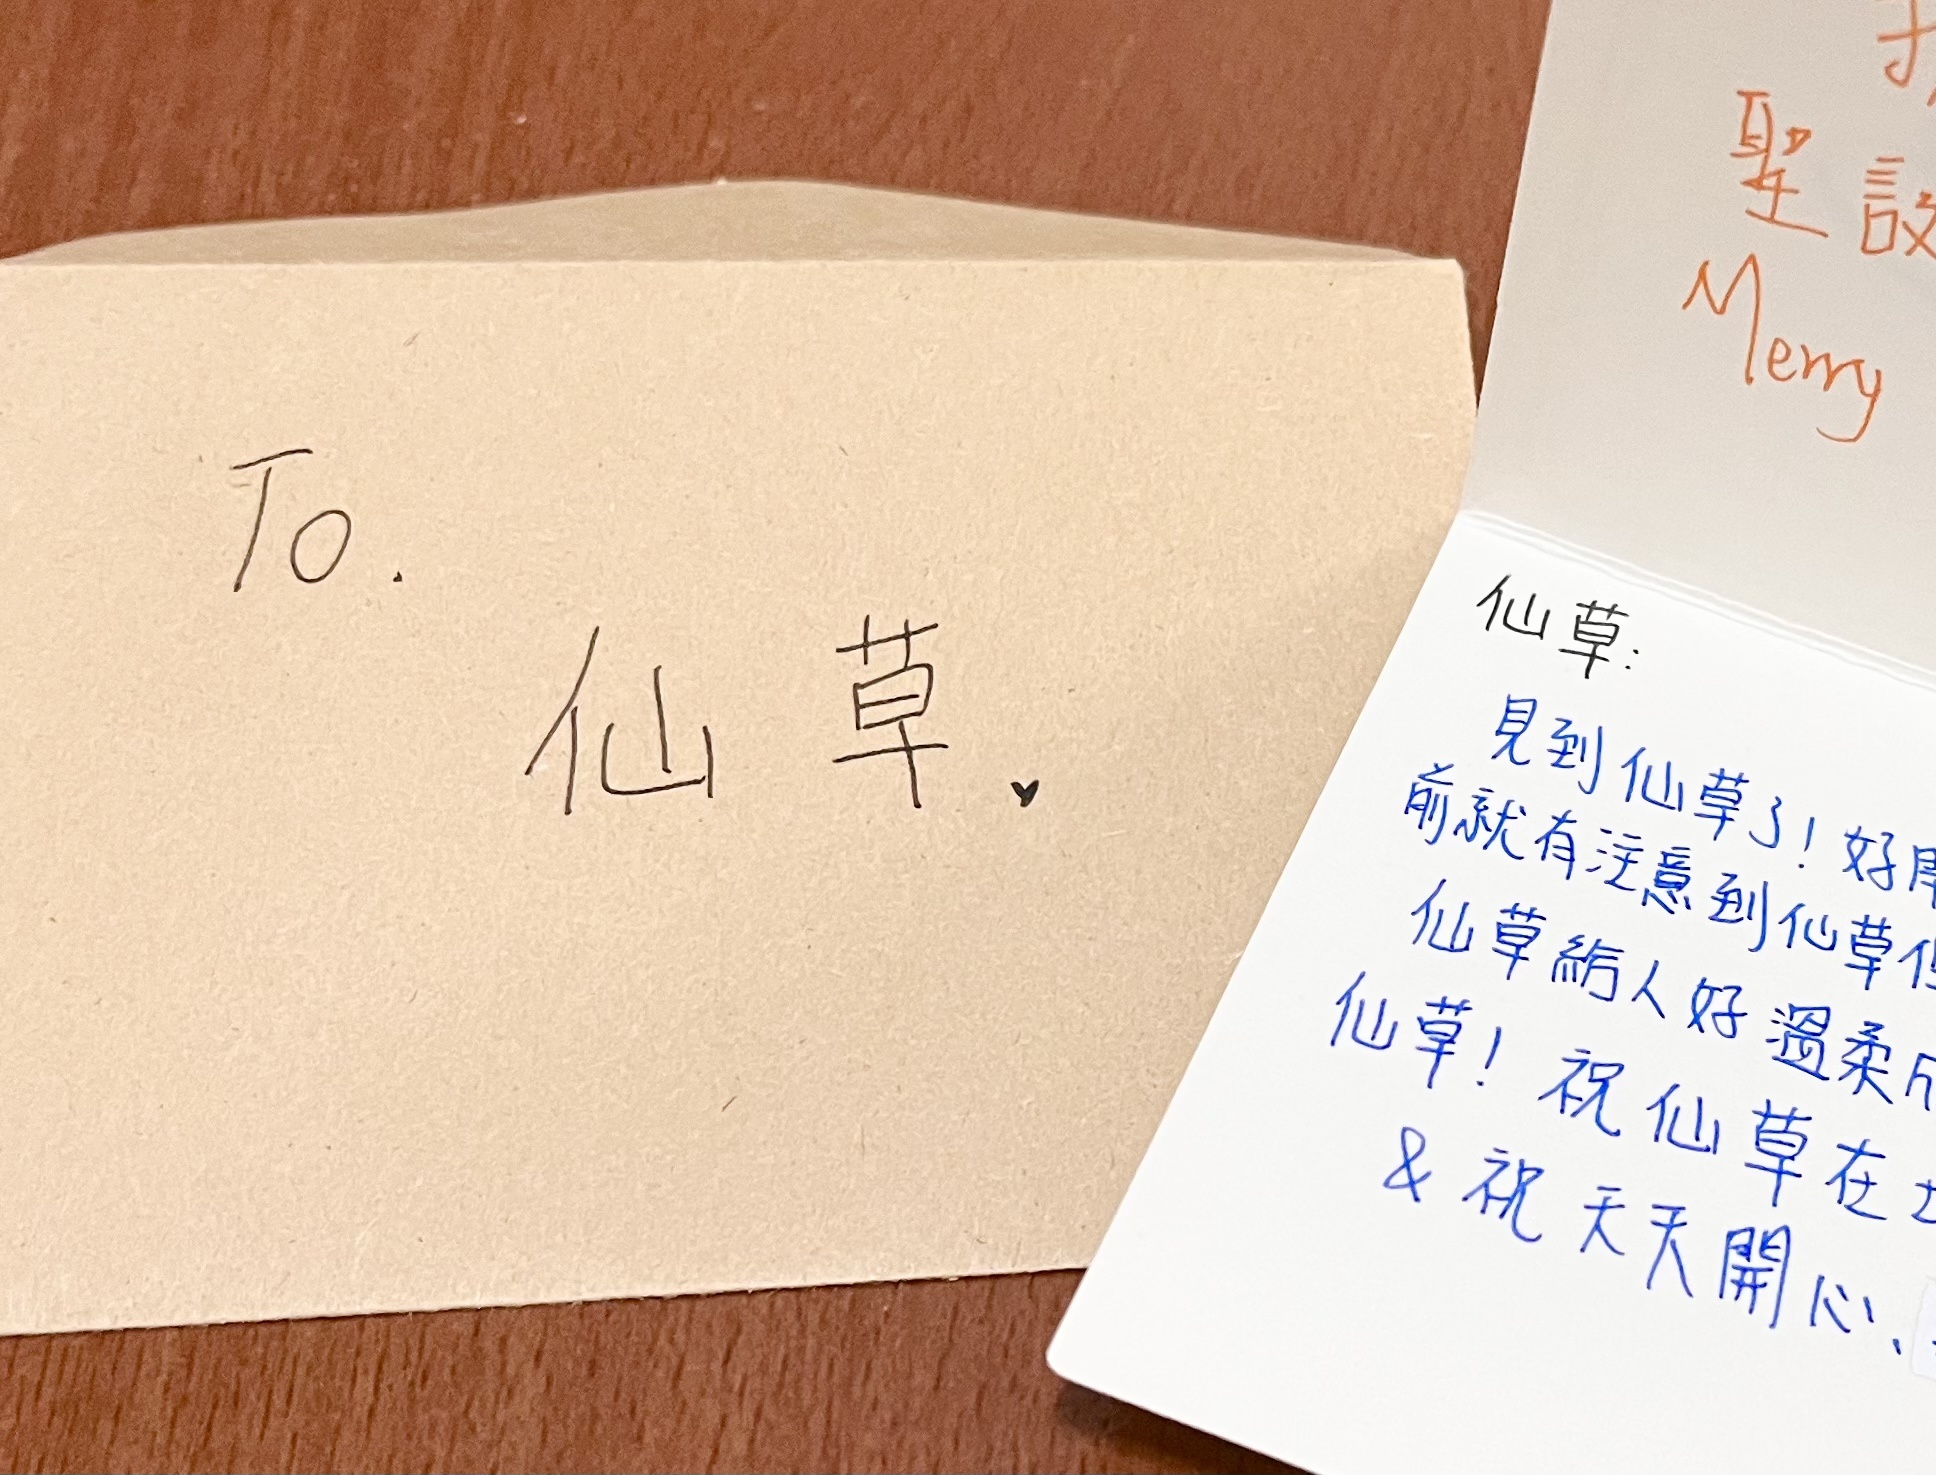 To.
仙草.
聖誕
Merry
仙草:
見到仙草了!好開
前就有注意到仙草但
仙草給人好溫柔
仙草!祝仙草在
& 祝天天開心、